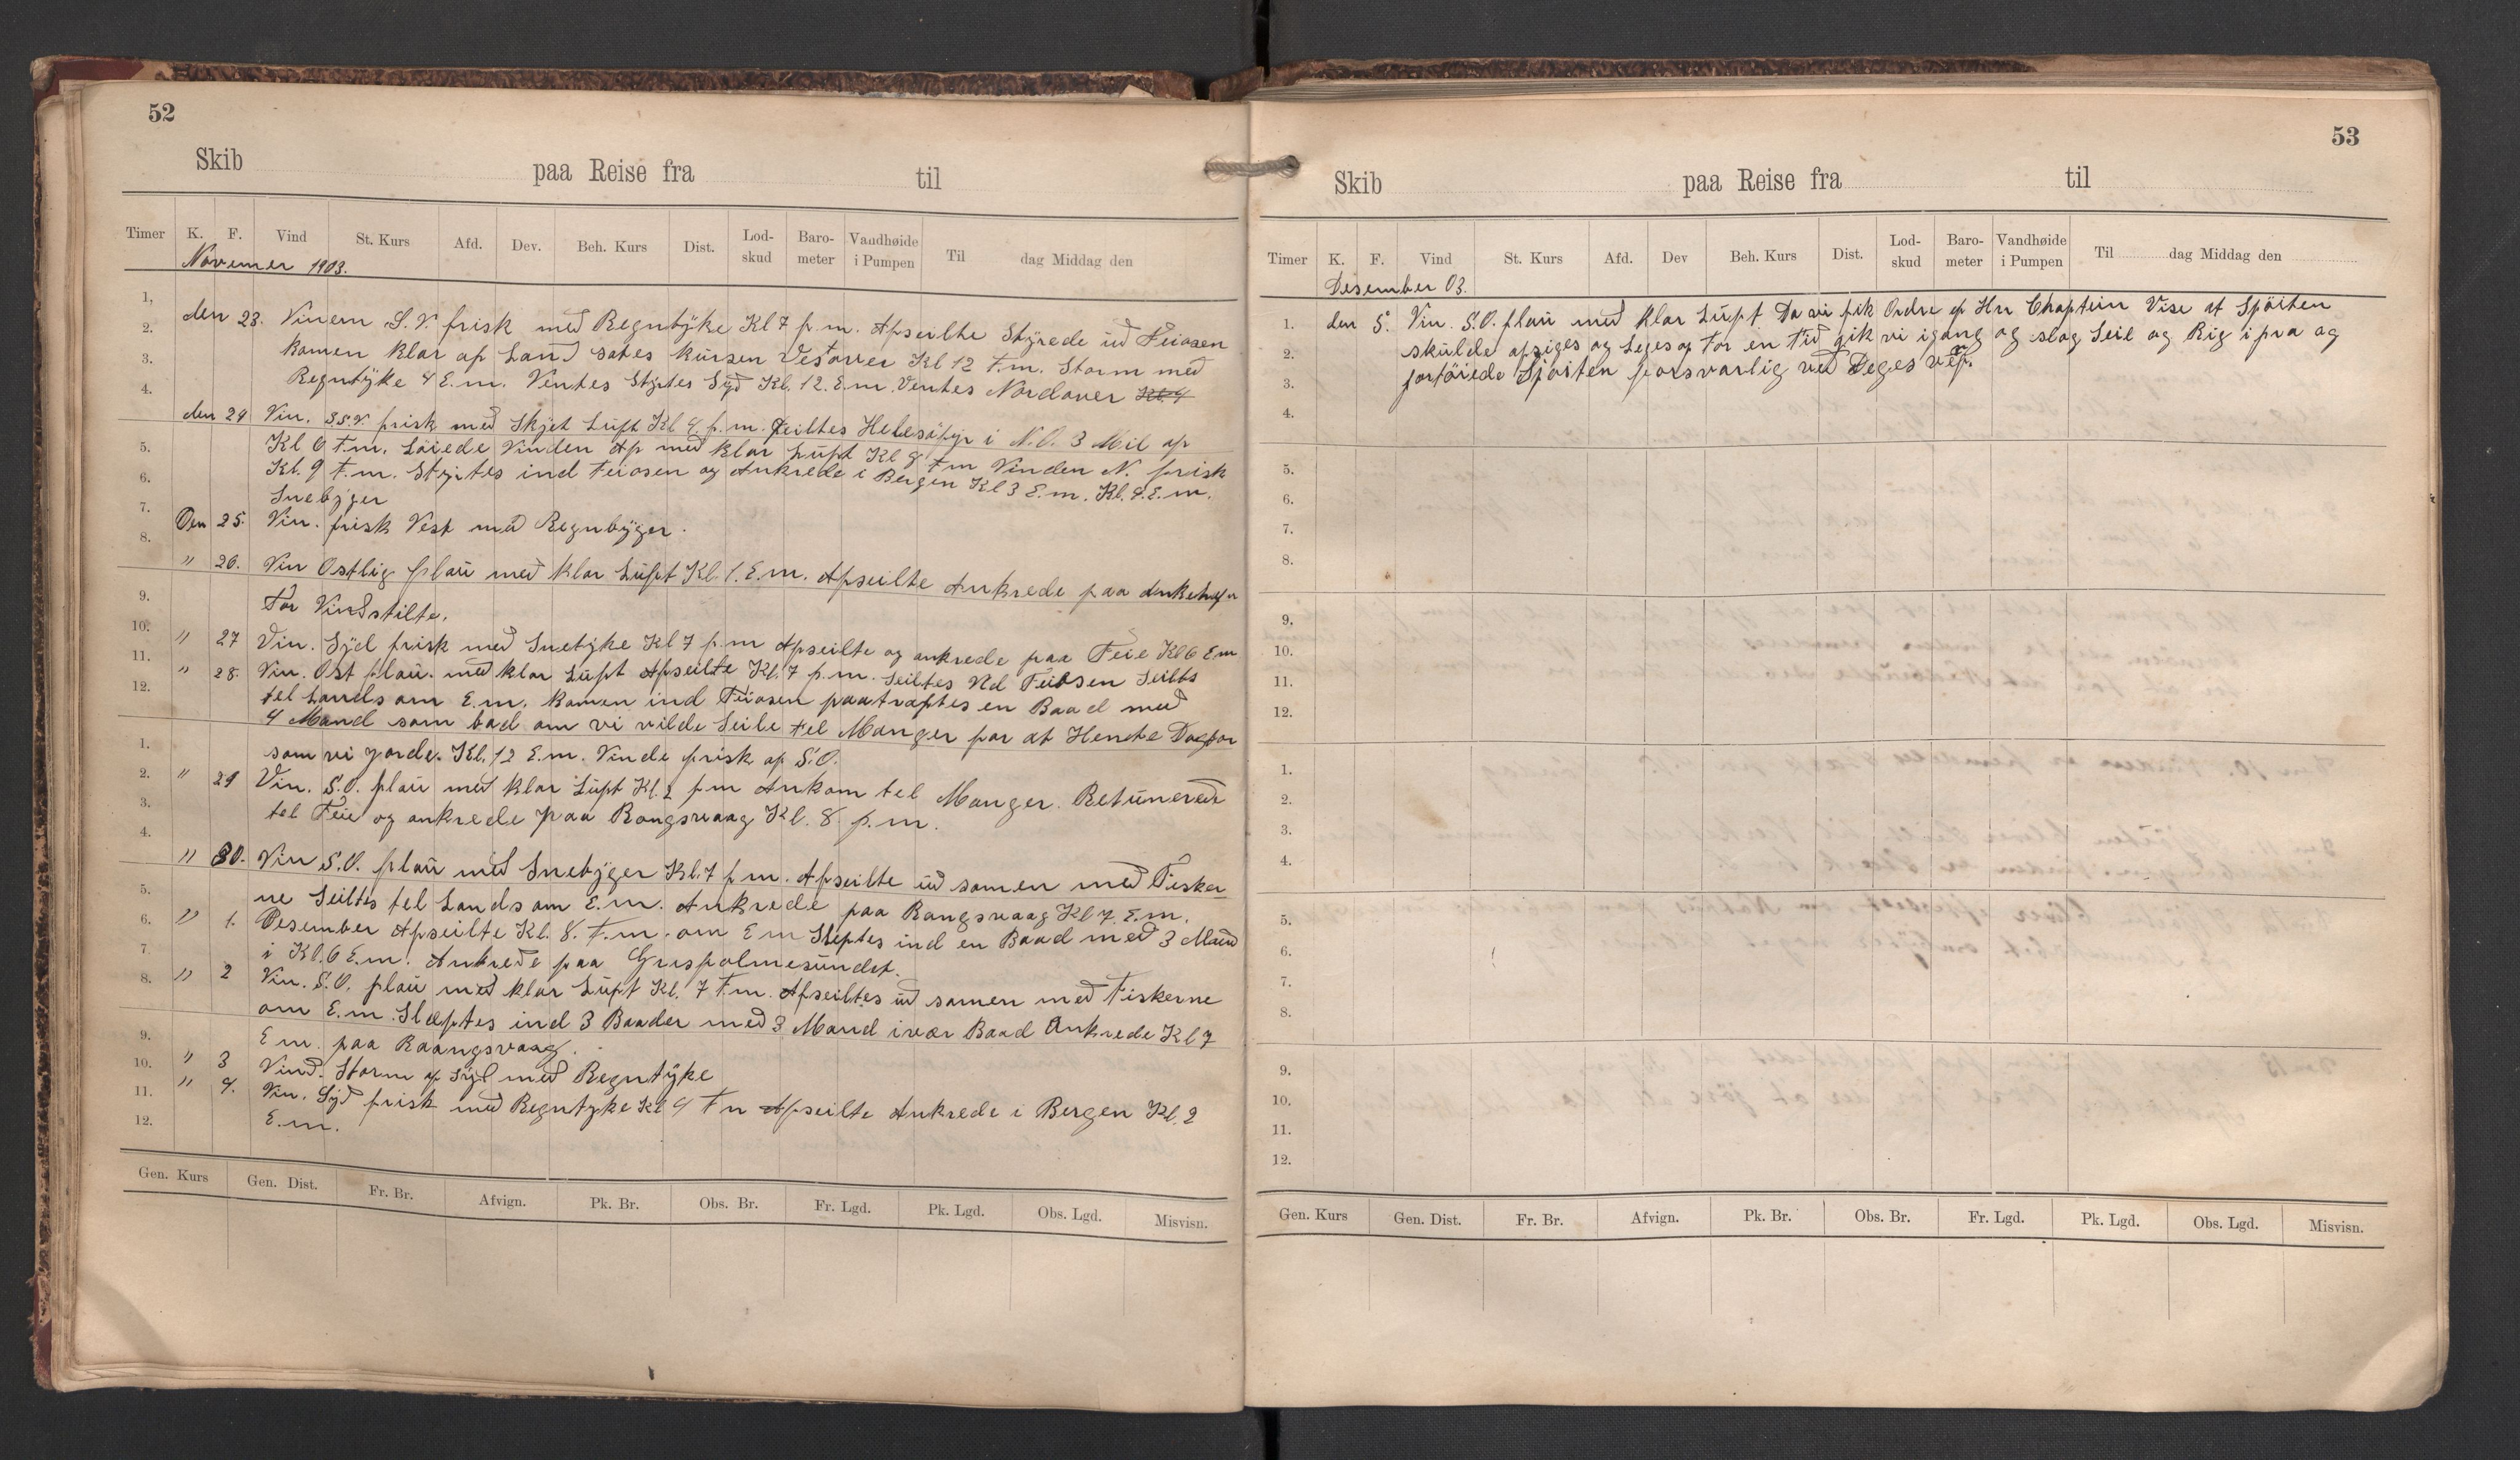 52
Skib paa Reise fra til
Timer K. F. Vind St. Kurs Afd. Dev. Beh. Kurs Dist. Lod-skud Baro-meter Vandhøide i Pumpen Til dag Middag den
Novemer 1903.
den 23. Vinem S.V. frisk med Regntÿke Kl 7 f.m. Afseilte Stÿrede ud Feiosen
Komen klar af Land sates kursen Vestover Kl 12 F.m. Storm med
Regntÿke 4 E.m. Ventes Stÿrtes Sÿd Kl. 12. E.m. Ventes Nordover Kl. 4
den 24 Vin. S.S.V. frisk med Skjet Luft Kl 4. f.m. Peiltes Helesøfÿr i N.O. 3 Mil af
Kl 6 F.m. Løiede Vinden Af med klar Luft Kl 8 Fm Vinden N. frisk
Kl. 9 F.m. Stÿrtes ind Feiosen og Ankrede i Bergen Kl 3 E.m. Kl. 4. E.m.
Snebÿger
Den 25. Vin. frisk Vest med Regnbÿger.
" 26. Vin Ostlig flau med klar Luft Kl. 1. E.m. Afseilte Ankrede paa
For Vindstilte.
" 27 Vin. Sÿd frisk med Snetÿke Kl 7 f.m Afseilte og ankrede paa Feie Kl 6 Em
" 28. Vin. Ost flau. med klar Luft Afseilte Kl. 7 f.m. Seiltes Ud Feiosen Seilts
tel Lands om E.m. Komen ind Feiosen paatraftes en Baad med
4 Mand som bad om vi vilde Seile tel Manger for at Hente Dogtor
som vi gorde. Kl. 12 E.m. Vinde frisk af S.O.
" 29 Vin. S.O. flau med klar Luft Kl. 2 f.m Ankom tel Manger. Retunerede
tel Feie og ankrede paa Rongsvaag Kl. 8 f.m.
" 30. Vin S.O. flau med Snebÿger Kl. 7 f.m. Afseilte ud samen med Fisker
ne Seiltes tel Lands om E.m. Ankrede paa Rangsvaag Kl 7. E.m.
" 1. Desember Afseilte Kl. 8. F.m. om Em Sleptes ind en Baad med 3 Mand
i Kl. 6 E.m. Ankrede paa Grisholmesundet.
" 2 Vin. S.O. flau med klar Luft Kl. 7 F.m. Afseiltes ud samen med Fiskerne
om E.m. Slæptes ind 3 Baader med 3 Mand i vær Baad Ankrede Kl 7
E m. paa Raangsvaag.
" 3 Vind. Storm af Sÿd med Regntÿke
" 4. Vin. Sÿd frisk med Regntÿke Kl 9 Fm Afseilte Ankrede i Bergen Kl. 2
E.m.
1, 2. 3. 4. 5. 6. 7. 8. 9. 10. 11. 12.
1. 2. 3. 4. 5. 6. 7. 8. 9. 10. 11. 12.
Gen. Kurs Gen. Dist. Fr. Br. Afvign. Pk. Br. Obs. Br. Fr. Lgd. Pk. Lgd. Obs. Lgd. Misvisn.
53
Skib paa Reise fra til
Timer K. F. Vind St. Kurs Afd. Dev Beh. Kurs Dist. Lod-skud Baro-meter Vandhøide i Pumpen Til dag Middag den
Desember 03.
den 5. Vin. S.O. flau med klar Luft Da vi fik Ordre af Hn Chaptein Vise at Sjøiten
skulde afsiges og Leges op For en Tid gik vi igang og slog Seil og Rig ifra og
fortøiede Sjøiten forsvarlig ved
1. 2. 3. 4. 5. 6. 7. 8. 9. 10. 11. 12.
1. 2. 3. 4. 5. 6. 7. 8. 9. 10. 11. 12.
Gen. Kurs Gen. Dist. Fr. Br. Afvign. Pk. Br. Obs. Br. Fr. Lgd. Pk. Lgd. Obs. Lgd. Misvisn.